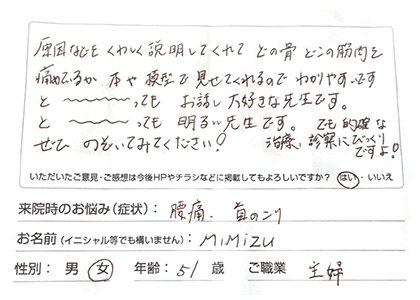 原因なども くわしく説明してくれて どの骨 どこの筋肉を
痛めているか 本や模型で見せてくれるので わかりやすいです
と 〜〜〜〜 っても お話し大好きな先生です。
と 〜〜〜〜 っても 明るい先生です。 でも的確な
ぜひ のぞいてみてください! 治療、診察にびっくり
ですよ!
いただいたご意見・ご感想は今後HPやチラシなどに掲載してもよろしいですか? はい・いいえ
来院時のお悩み(症状): 腰痛、首のこり
お名前(イニシャル等でも構いません): MiMiZU
性別: 男 女 年齢: 51 歳 ご職業 主婦